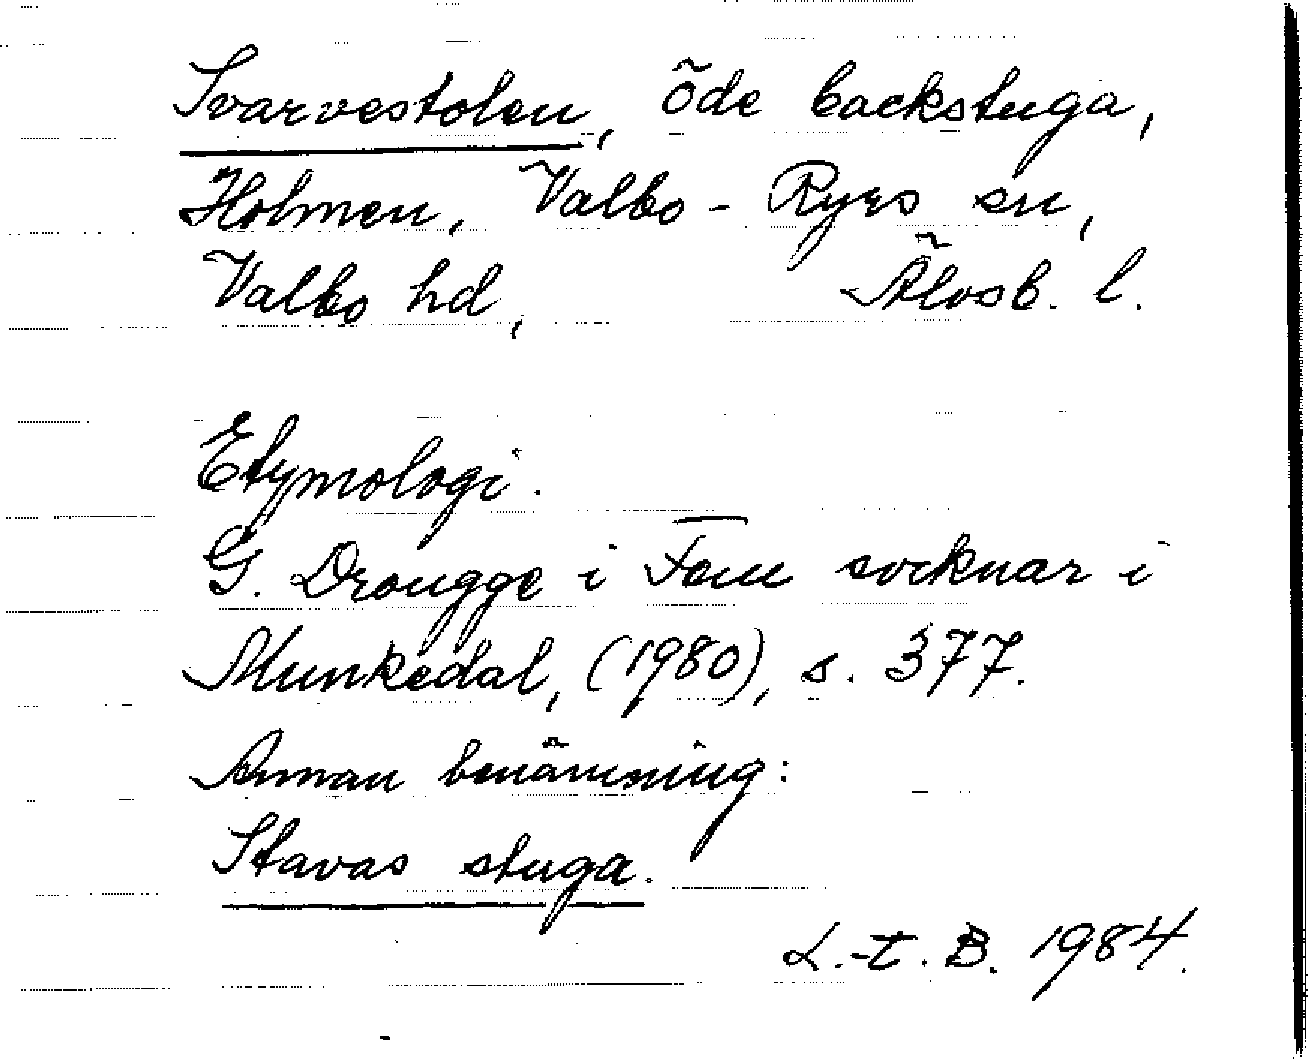 Svarvestolen, öde backstuga,
Holmen, Valbo-Ryrs sn,
Valbo hd, Älvsb. l.
Etymologi.
G. Drougge i Fem socknar i
Munkedal, (1980), s. 377.
Annan benämning:
Stavas stuga.
L.-t. B. 1984.